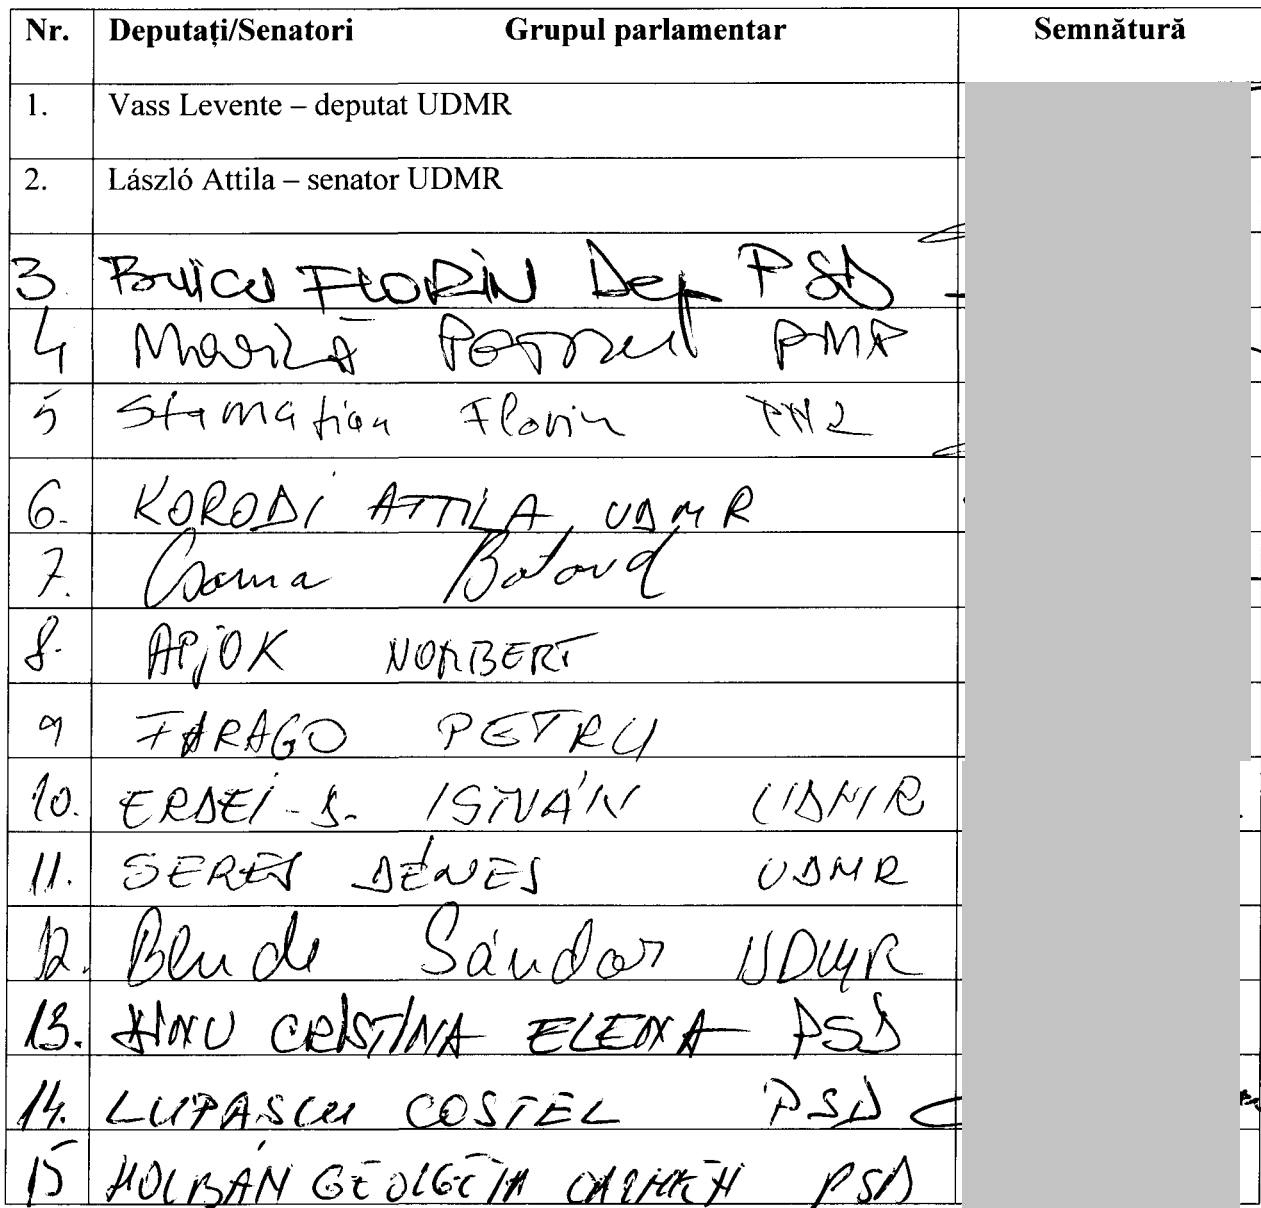 Nr. Deputați/Senatori Grupul parlamentar Semnătură
1. Vass Levente – deputat UDMR
2. László Attila – senator UDMR
3. Buicu FLORIN Dep PSD
4 PMP
5 Stamatian Florin PNL
6. KORODI ATTILA UDMR
7. Csoma Botond
8. APJOK NORBERT
9 FARAGO PETRU
10. ERDEI-D. ISTVÁN UDMR
11. SERES DÉNES UDMR
12. Bende Sándor UDMR
13. DINU CRISTINA ELENA PSD
14. LUPASCU COSTEL PSD
15 HOLBAN GEORGETA CARMEN PSD